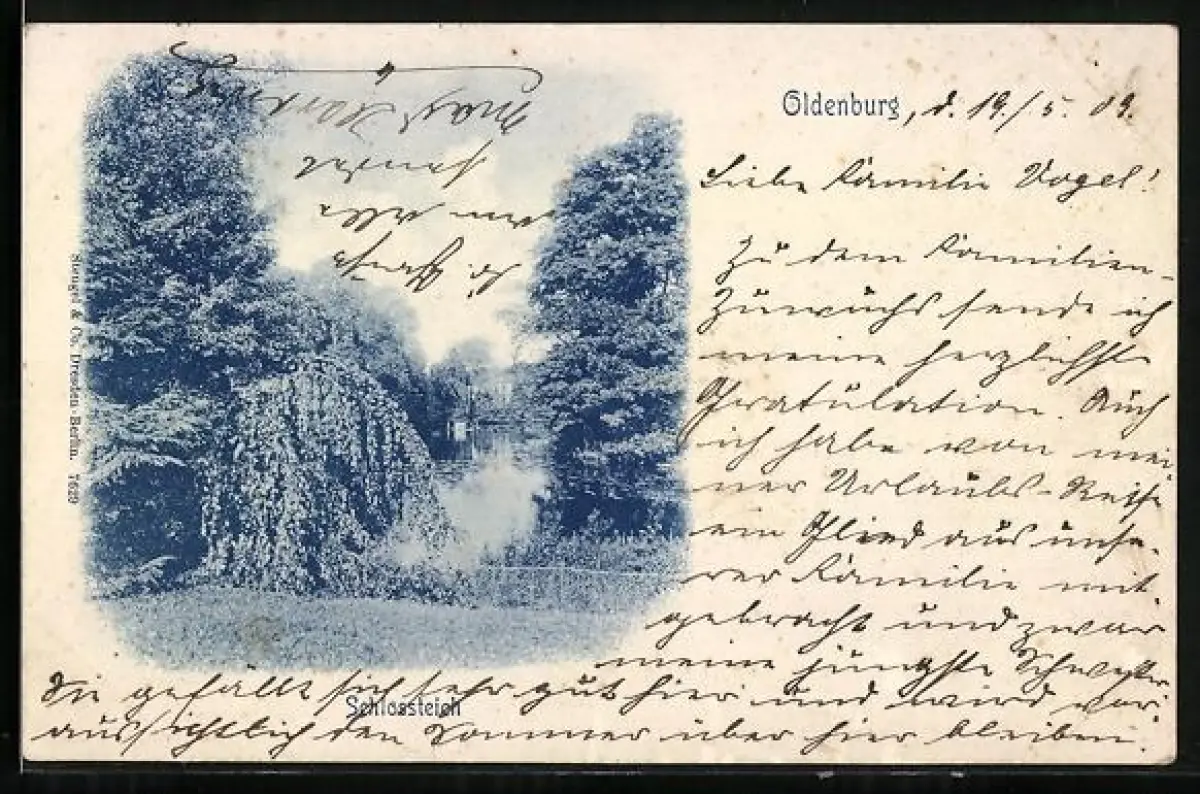 Oldenburg, d. 19./5. 09.
Liebe Familie Vogel!
Zu dem Familien-
Zuwachs sende ich
meine herzlichste
Gratulation. Auch
ich habe von mei
ner Urlaubs-Reise
ein Glied aus unse-
rer Familie mit
gebracht und zwar
meine jüngste Schwester.
Sie gefällt sich sehr gut hier und wird vor-
aussichtlich den Sommer über hier bleiben.
Schlossteich
Stengel & Co., Dresden-Berlin. 7629